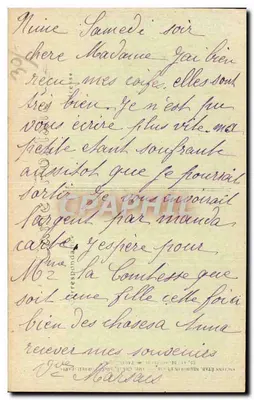 Nime Samedi soir
chere Madame J'ai bien
recu mes coifes. elles sont
très bien. Je n'est pu
vous écrire plus vite. ma
petite etant soufrante
aussitot que je pourrait
sortir Je vous envoirait
l'argent par manda
carte. J'espère pour
Mme la Comtesse que
soit une fille cette fois
bien des choses a Anna
recever mes souvenirs
Vve
CPAPHIL